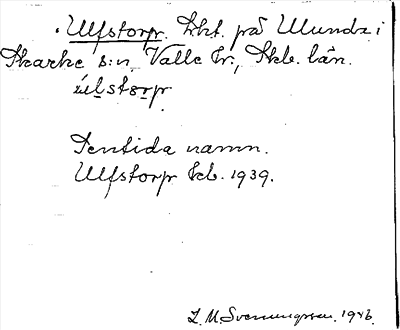 Ulfstorp. Lht. på Ulunda i
Skarke s:n, Valle hr., Skb. län.
ùlstorp
Sentida namn.
Ulfstorp kb. 1939.
Z. M. Svenungsson. 1946.